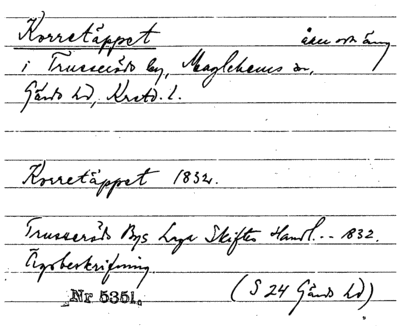 Korretäppet åker och äng
i Trusseröds by, Maglehems sn,
Gärds hd, Krstd. l.
Korretäppet 1832.
Trusseröds Bys Laga Skiftes Handl... 1832.
Ägobeskrifning
Nr 5351. (S 24 Gärds hd)